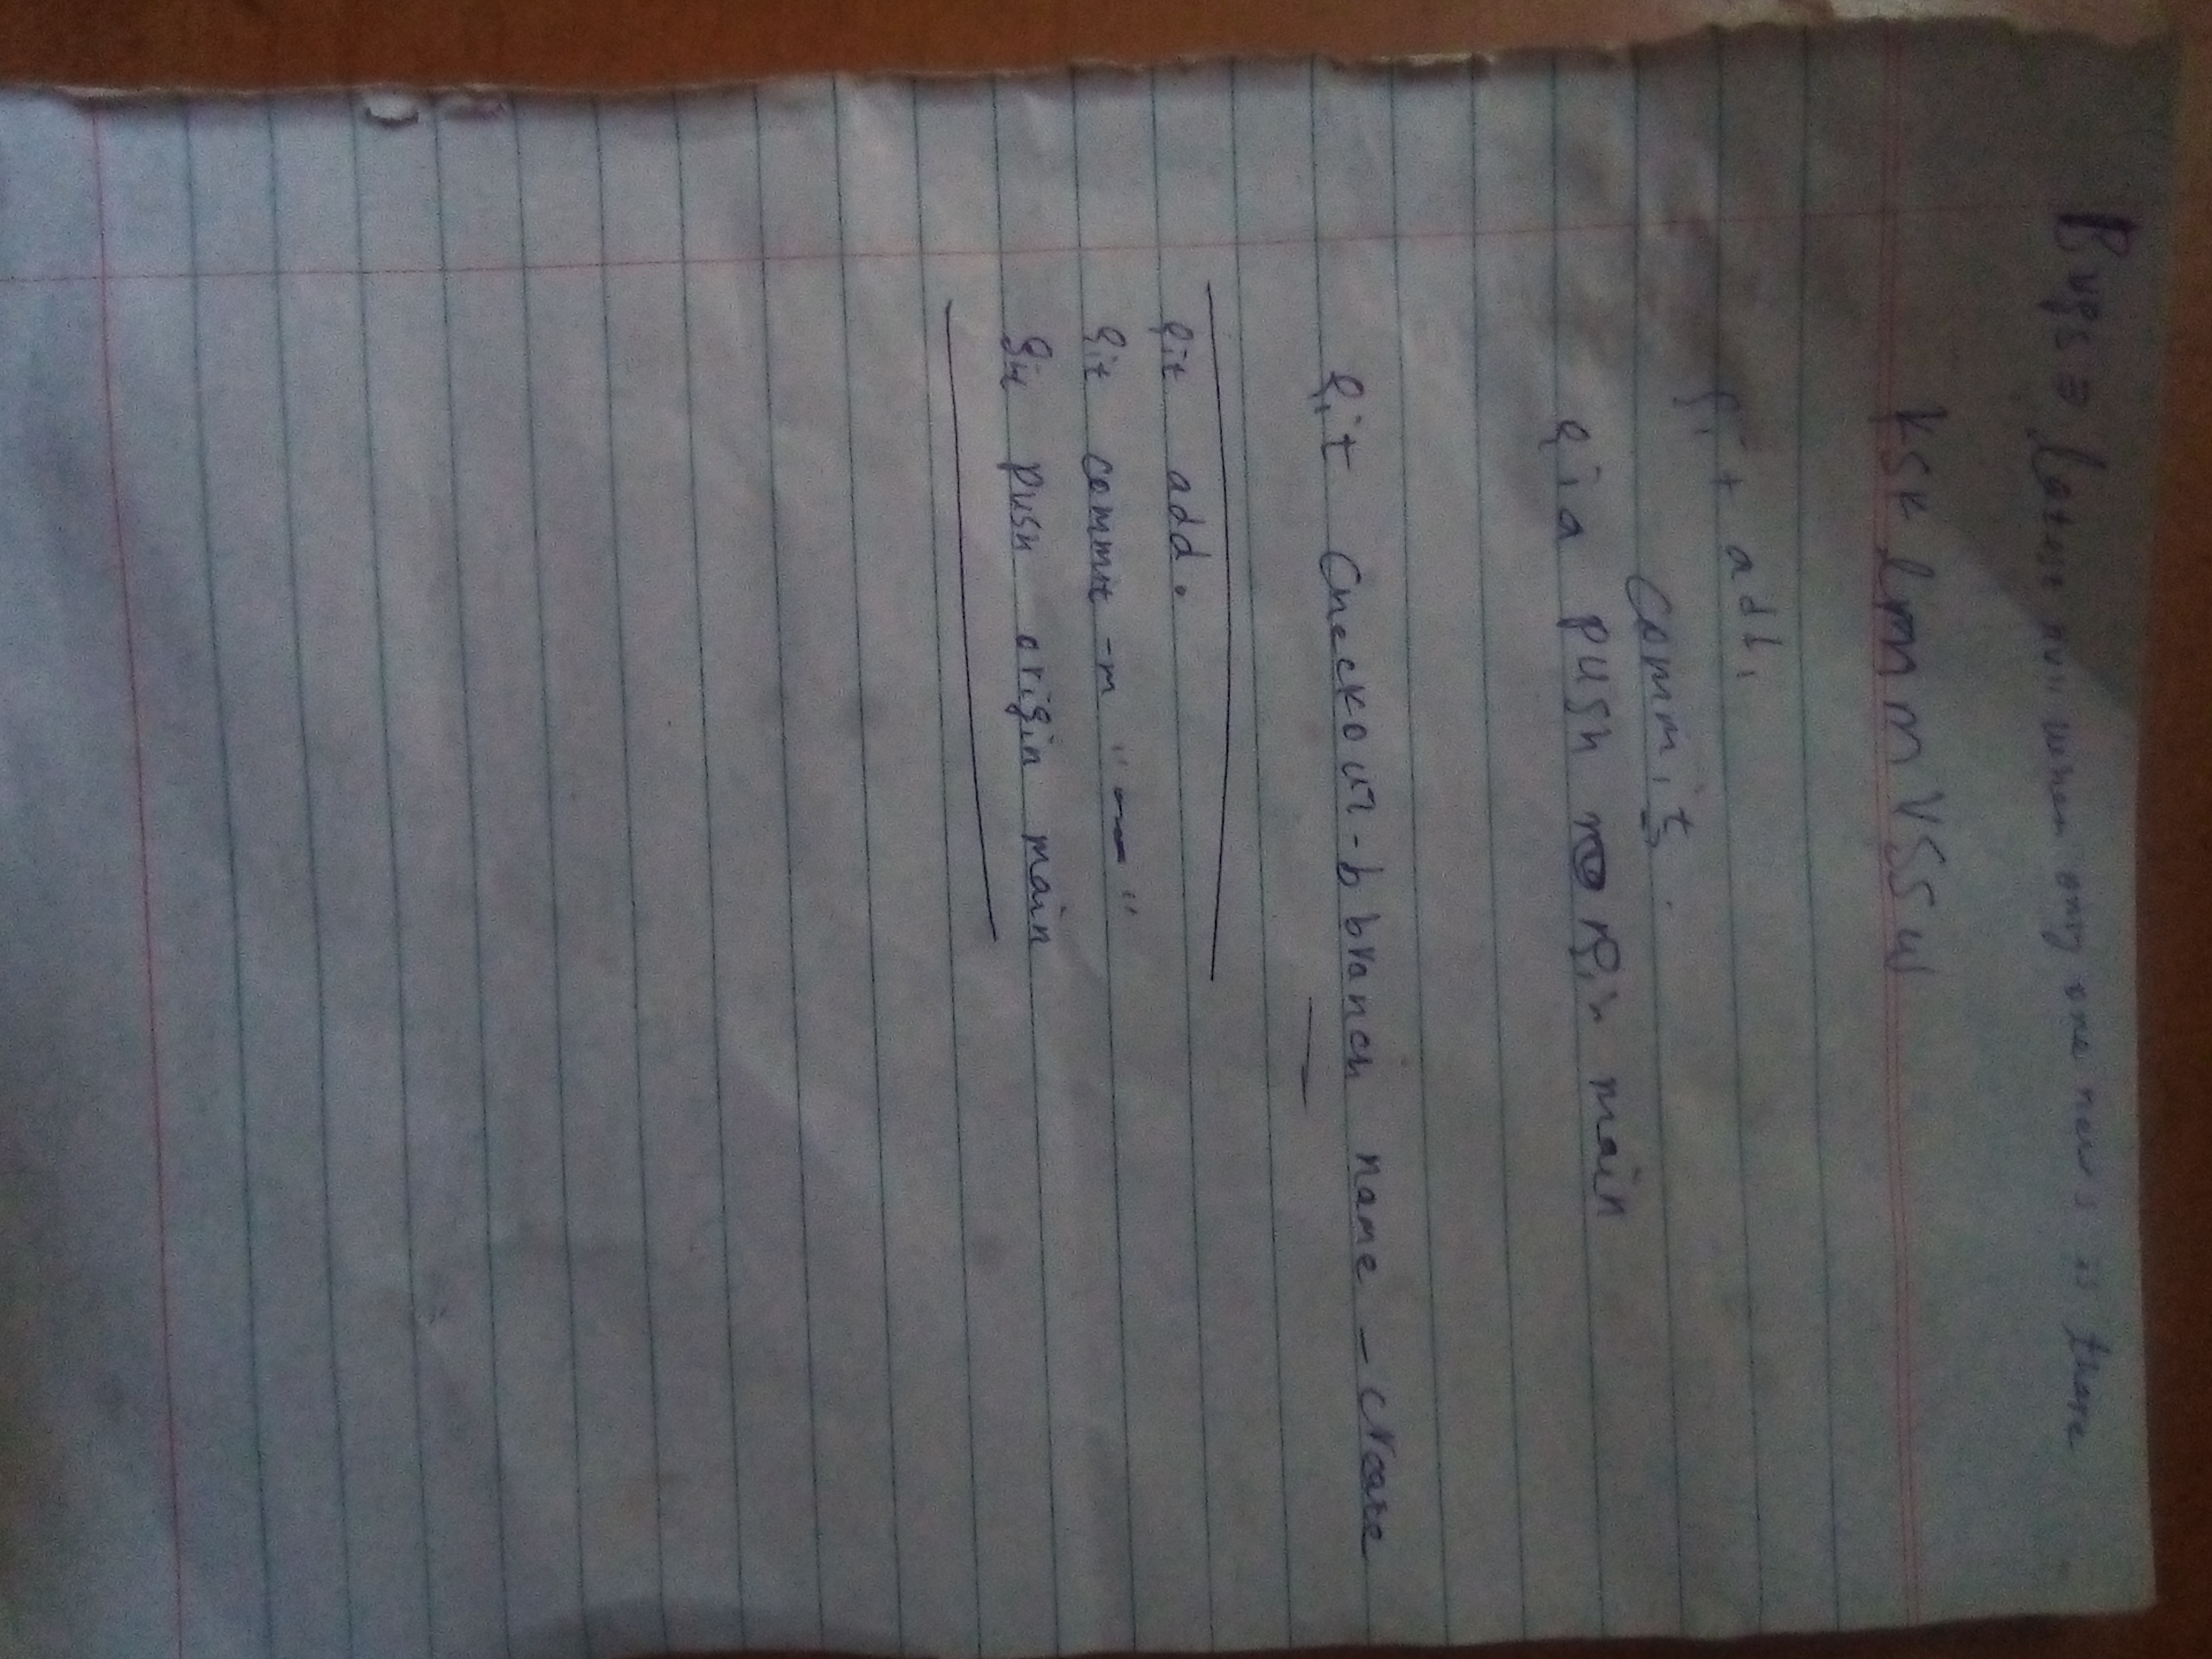 Bugs = latest null when only one news is there
KSK lmnm VSSW
git add.
commit.
git push origin main
git checkout -b branch name - create
git add.
git commit -m "—"
git push origin main